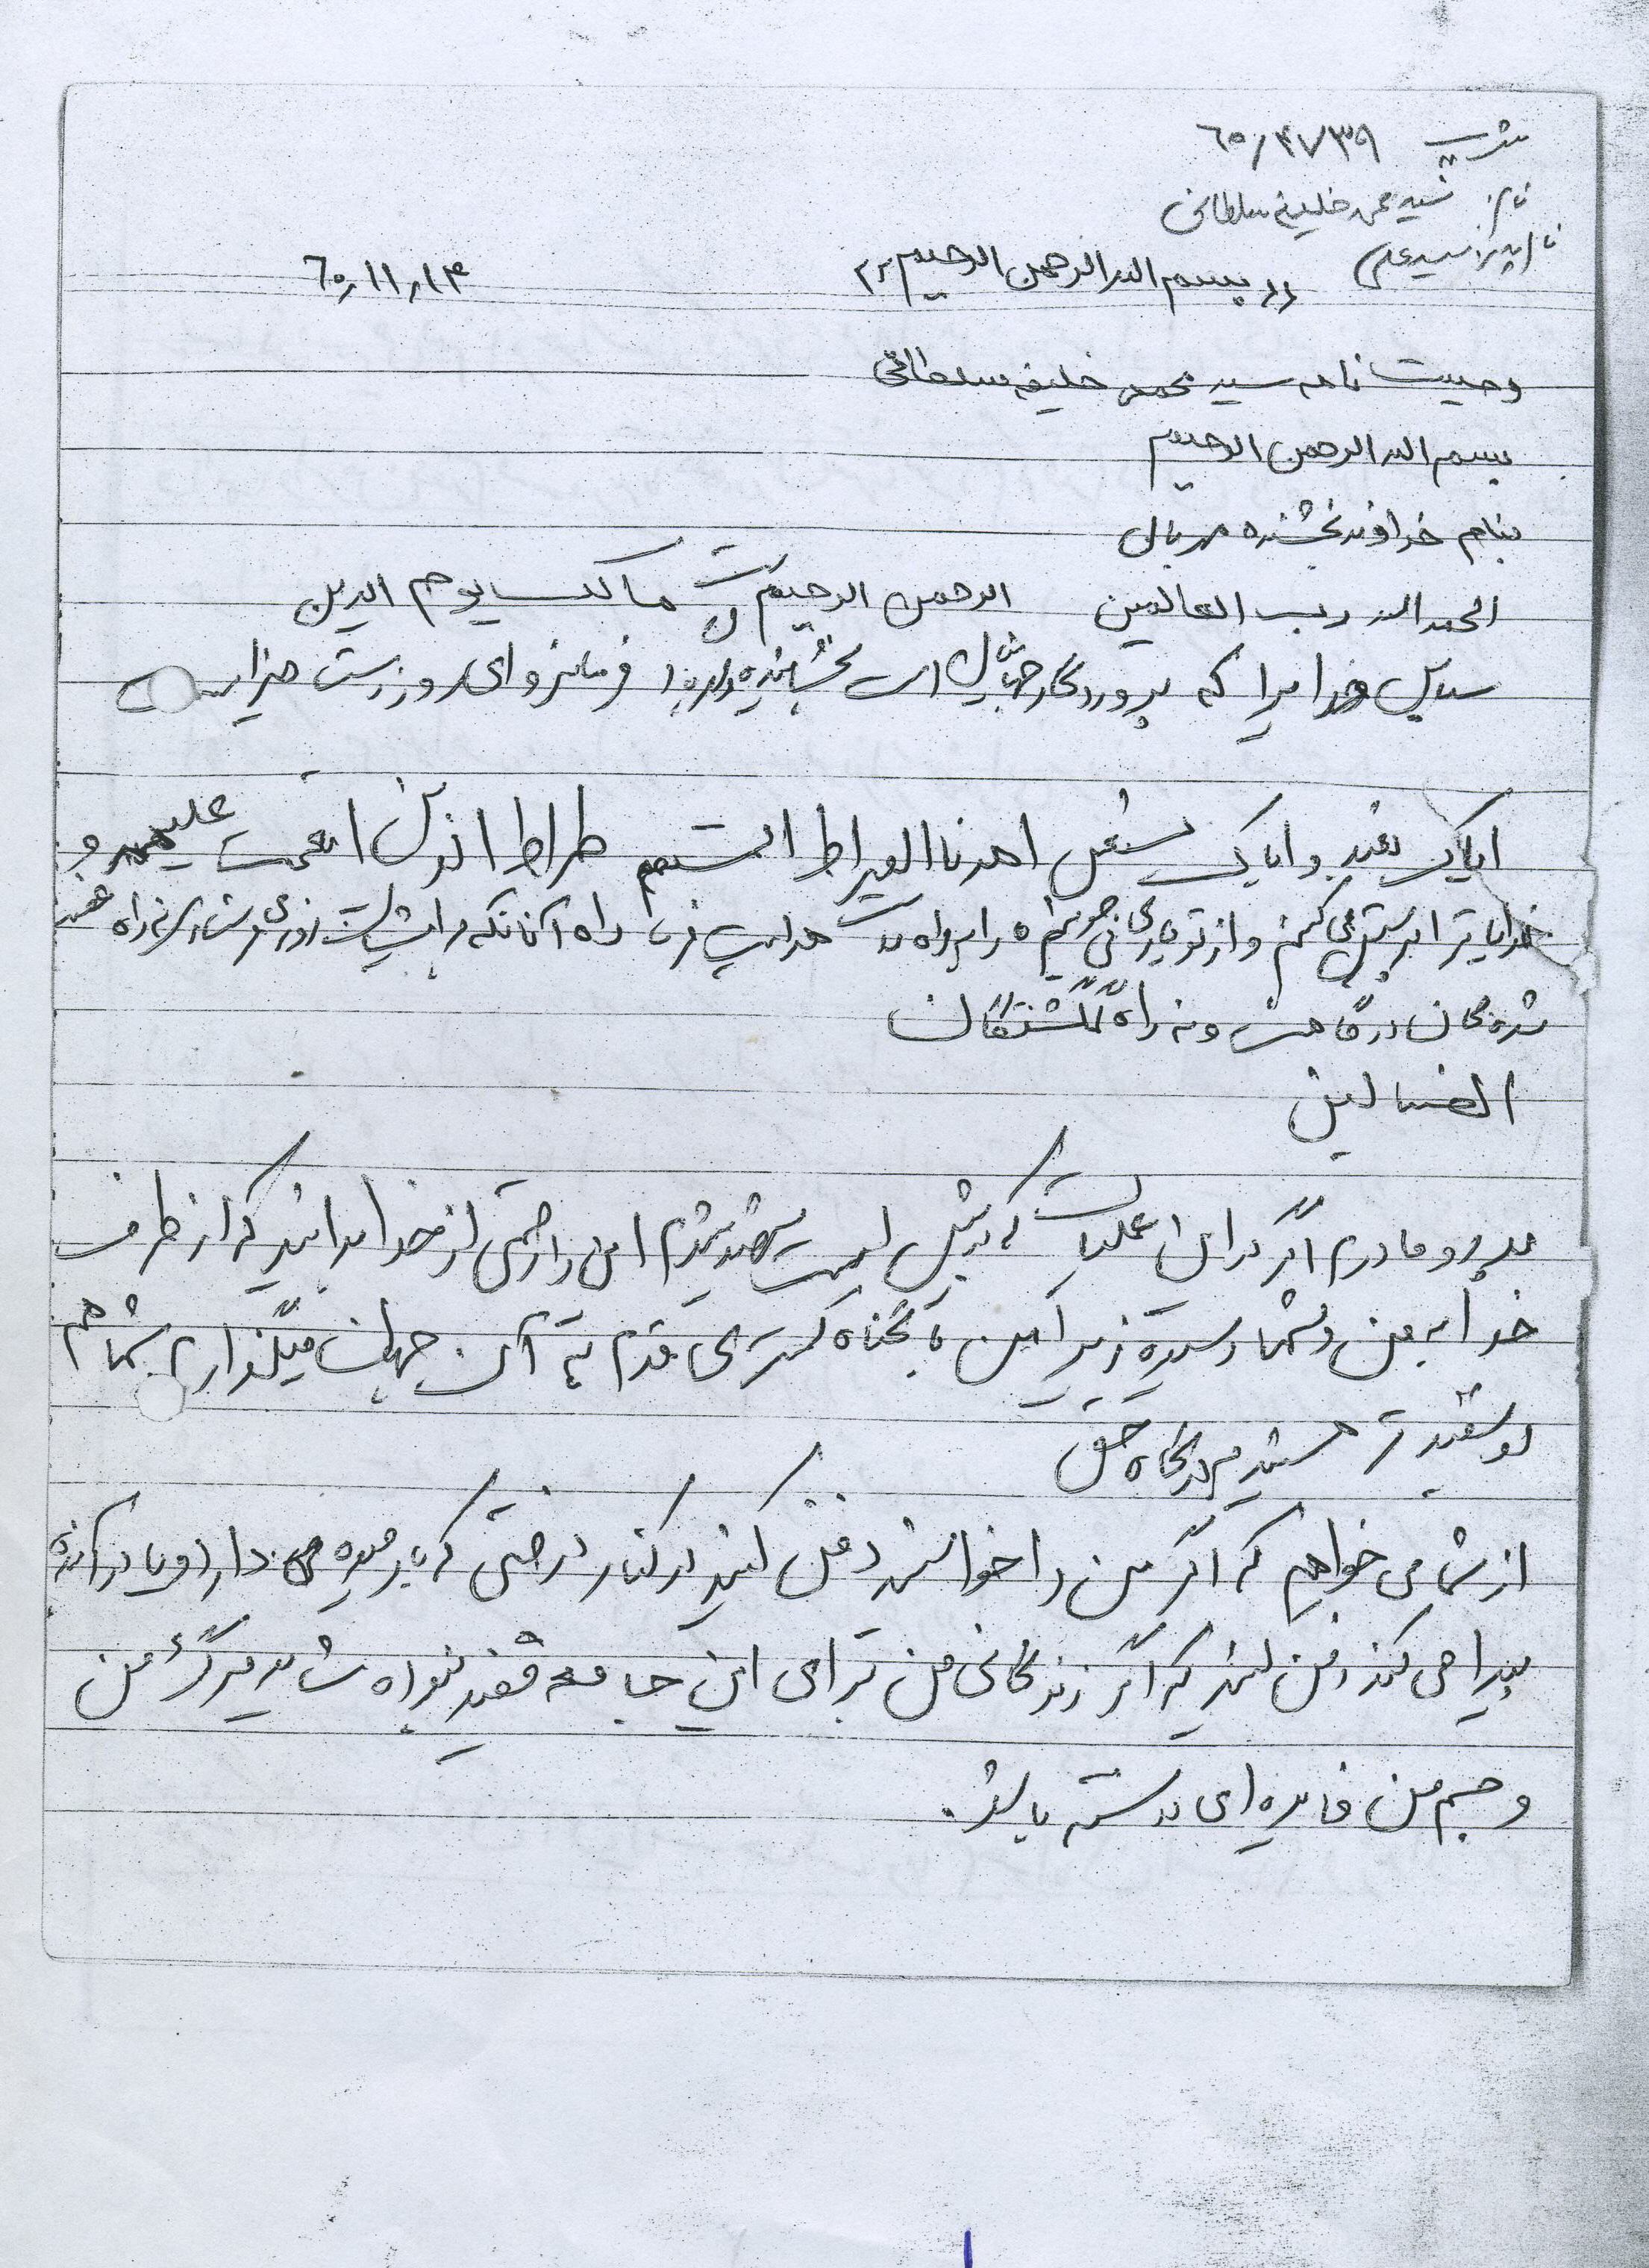 ۶۵/۴۷۳۹
نام: سید محمد خلیفه سلطانی
نام پدر: سید علی
«بسم الله الرحمن الرحیم»
۶۰,۱۱,۱۴
وصیت نامه سید محمد خلیفه سلطانی
بسم الله الرحمن الرحیم
بنام خداوند بخشنده مهربان
الحمد الله رب العالمین الرحمن الرحیم مالک یوم الدین
ستایش خدایرا که پروردگار جهانیان است بخشاینده فرمانروای روز رستاخیز است
ایاک نعبد و ایاک نستعین اهدنا الصراط المستقیم صراط الذین انعمت علیهم و
خدایا ترا پرستش می کنم و از تو یاری می جویم ما را براه راست هدایت فرما راه آنانکه نه راه
شده گان درگاهت و نه راه گمگشتگان
الضالین
پدر و مادرم اگر در این عملیات که در پیش است شهید شدم این را رحمتی از خدا بدانید که از طرف
خدا به من و شما رسیده زیرا من با گناه کمتری قدم به آن جهان میگذارم شما هم
رو سفید تر هستید در درگاه حق
از شما می خواهم که اگر من را خواستید دفن کنید در کنار درختی که بار میوه می دارد و یا در آینده
پیدا می کند دفن کنید که اگر زندگانی من برای این جامعه مفید نبود شاید مرگ من
و جسم من فایده ای داشته باشد.